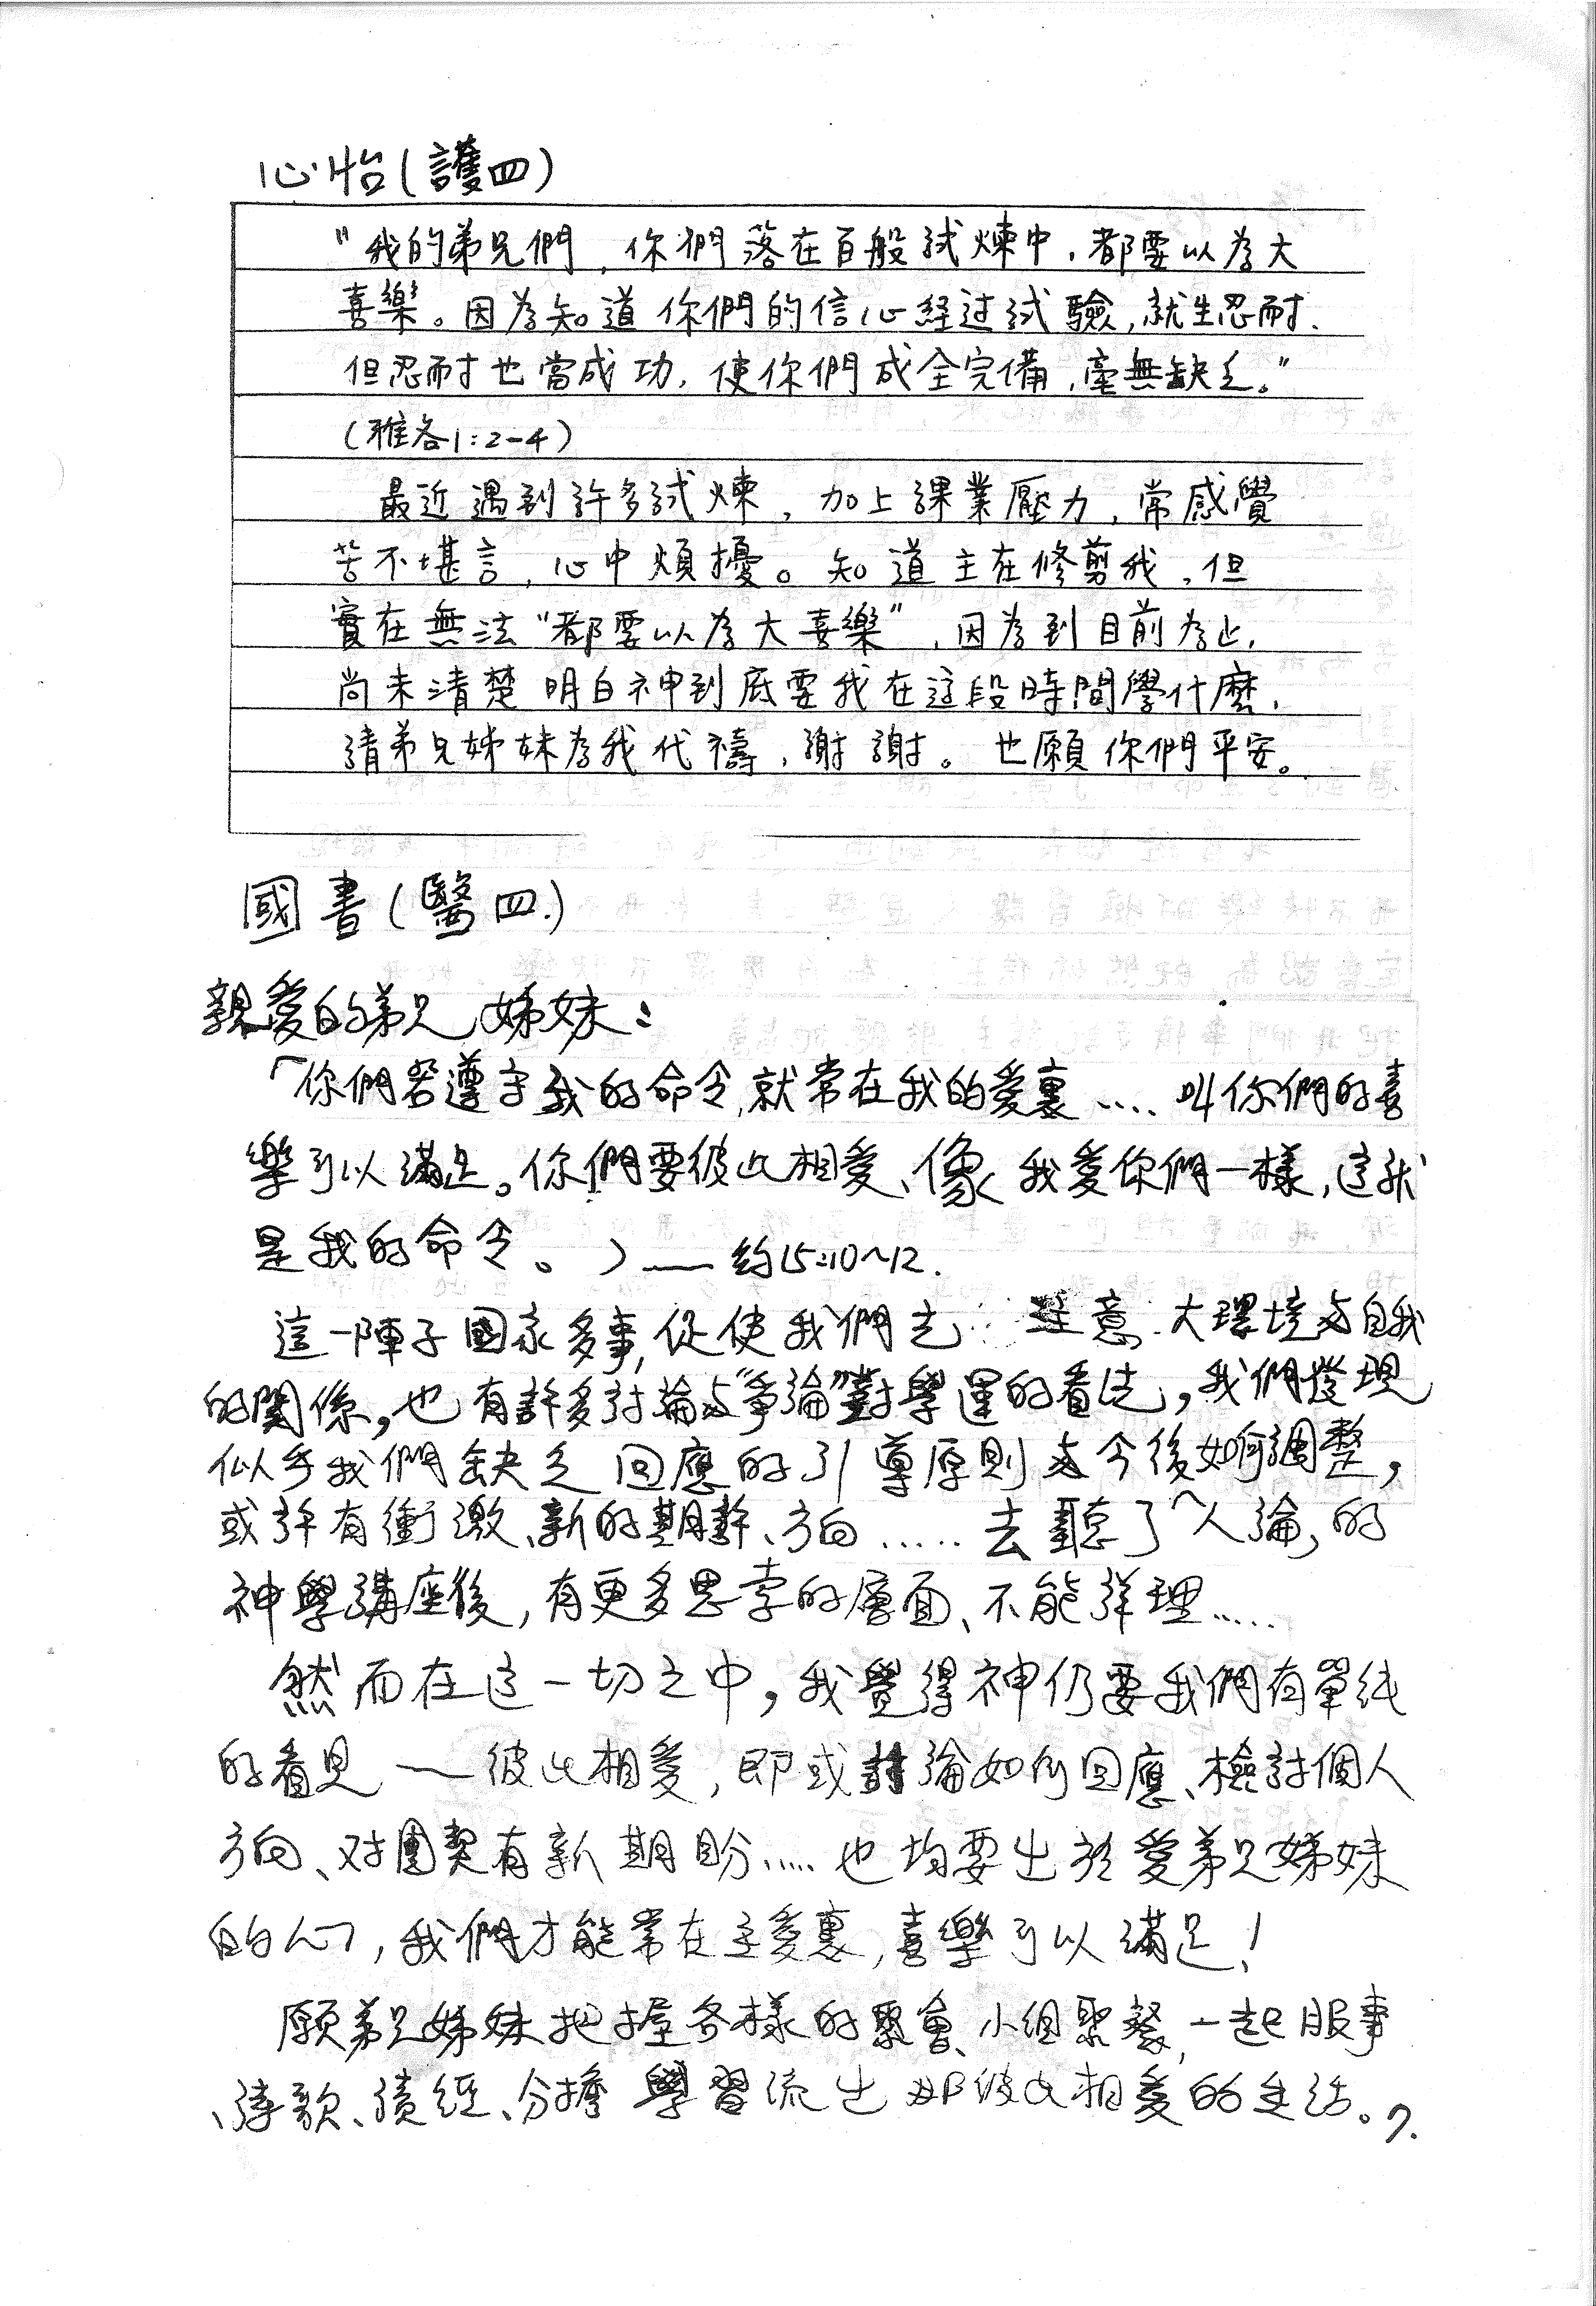 心怡(護四)
"我的弟兄們,你們落在百般試煉中,都要以為大
喜樂。因為知道你們的信心經过試驗,就生忍耐.
但忍耐也當成功,使你們成全完備,毫無缺乏。"
(雅各1:2-4)
最近遇到許多試煉,加上課業壓力,常感覺
苦不堪言,心中煩擾。知道主在修剪我,但
實在無法"都要以為大喜樂",因為到目前為止,
尚未清楚明白神到底要我在這段時間學什麼,
請弟兄姊妹為我代禱,謝謝。也願你們平安。
國書(醫四.)
親愛的弟兄姊妹:
「你們若遵守我的命令,就常在我的愛裏....叫你們的喜
樂可以滿足。你們要彼此相愛、像我愛你們一樣,這就
是我的命令。」——約15:10~12.
這一陣子國家多事,促使我們去注意大環境与自我
的關係,也有許多討論与"爭論"對學運的看法,我們發現
似乎我們缺乏回應的引導原則与今後如何調整,
或許有衝激、新的期許、方向.....去聽了「人論」的
神學講座後,有更多思索的層面、不能詳理.....
然而在這一切之中,我覺得神仍要我們有單純
的看見——彼此相愛,即或討論如何回應、檢討個人
方向、对團契有新期盼.....也均要出於愛弟兄姊妹
的心,我們才能常在主愛裏,喜樂可以滿足!
願弟兄姊妹把握各樣的聚會、小組聚餐,一起服事
、詩歌、讀經、分擔學習流出那彼此相愛的生活。7.